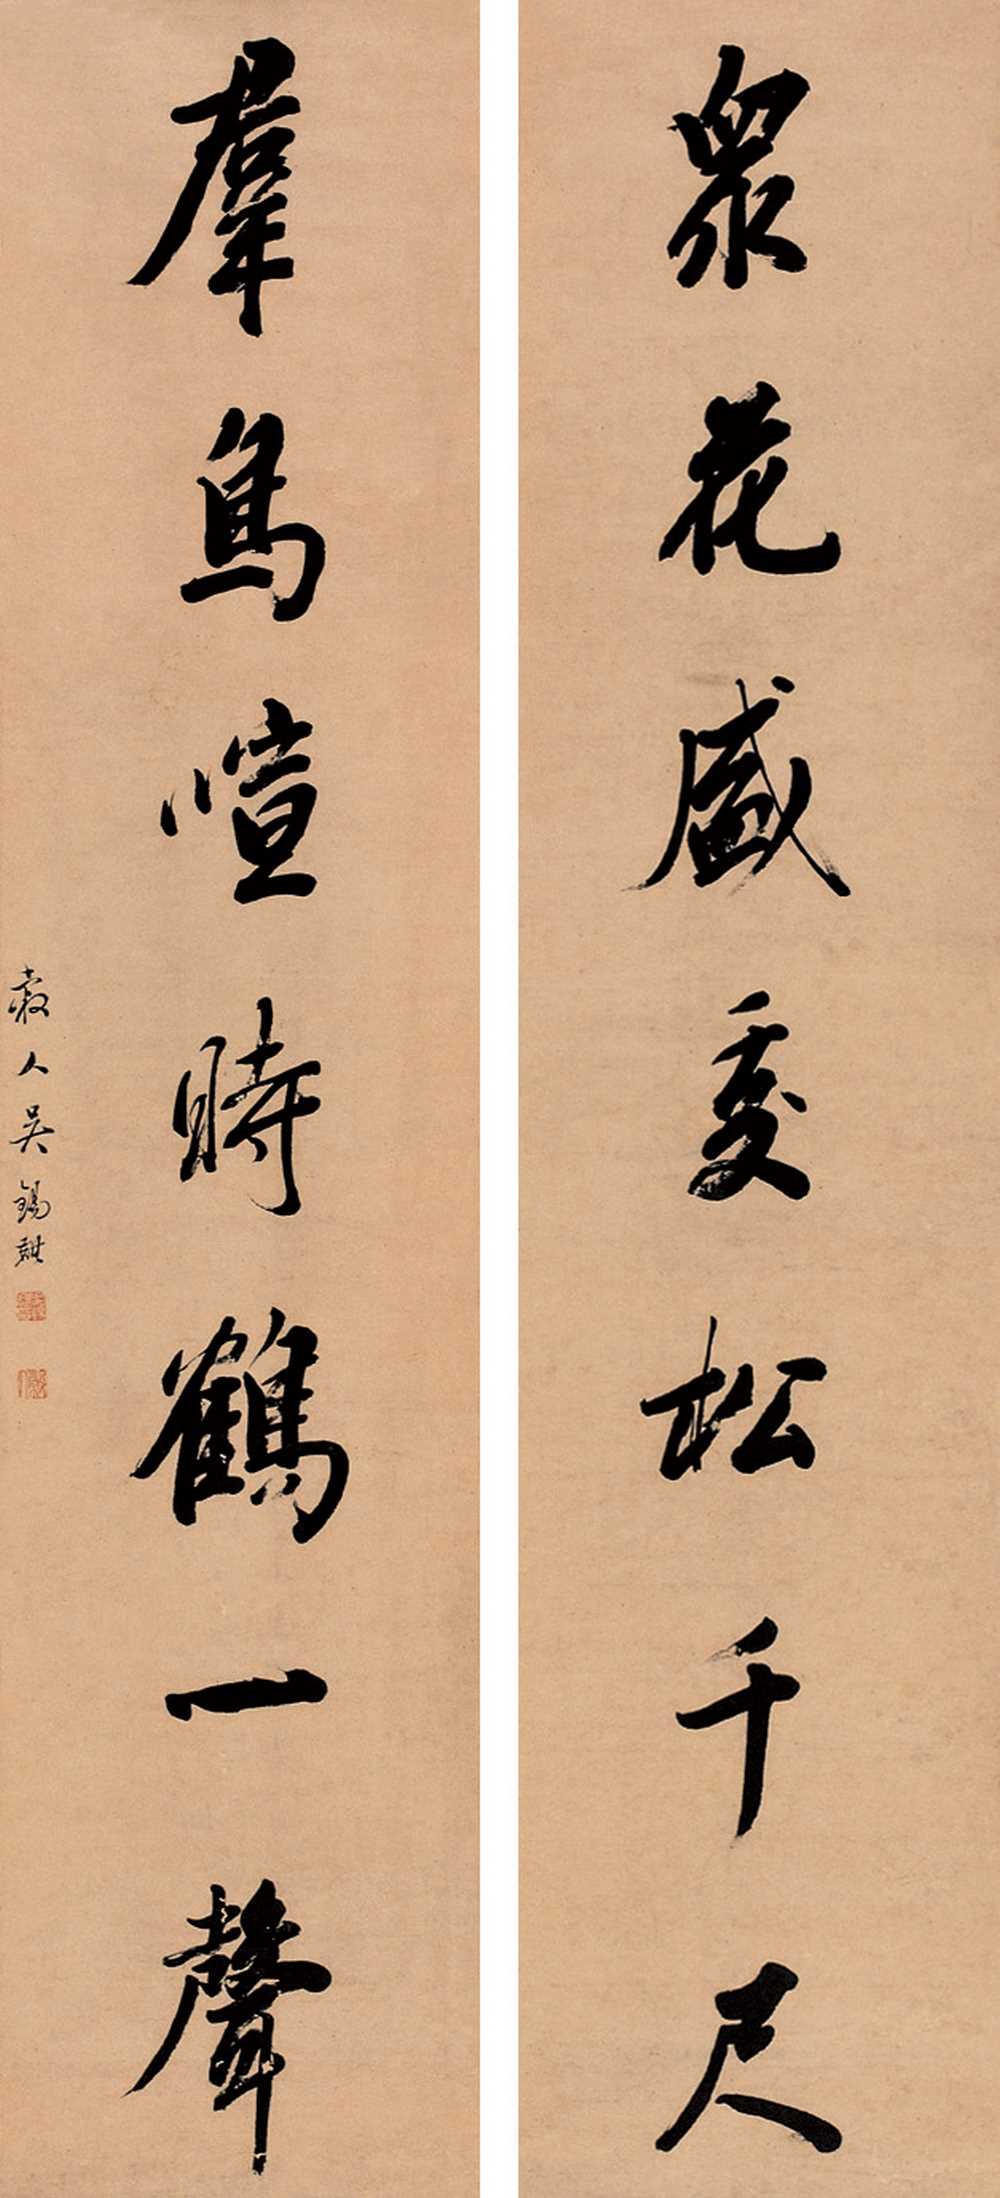 眾花盛處松千尺
羣鳥喧時鶴一聲
穀人吳錫麒